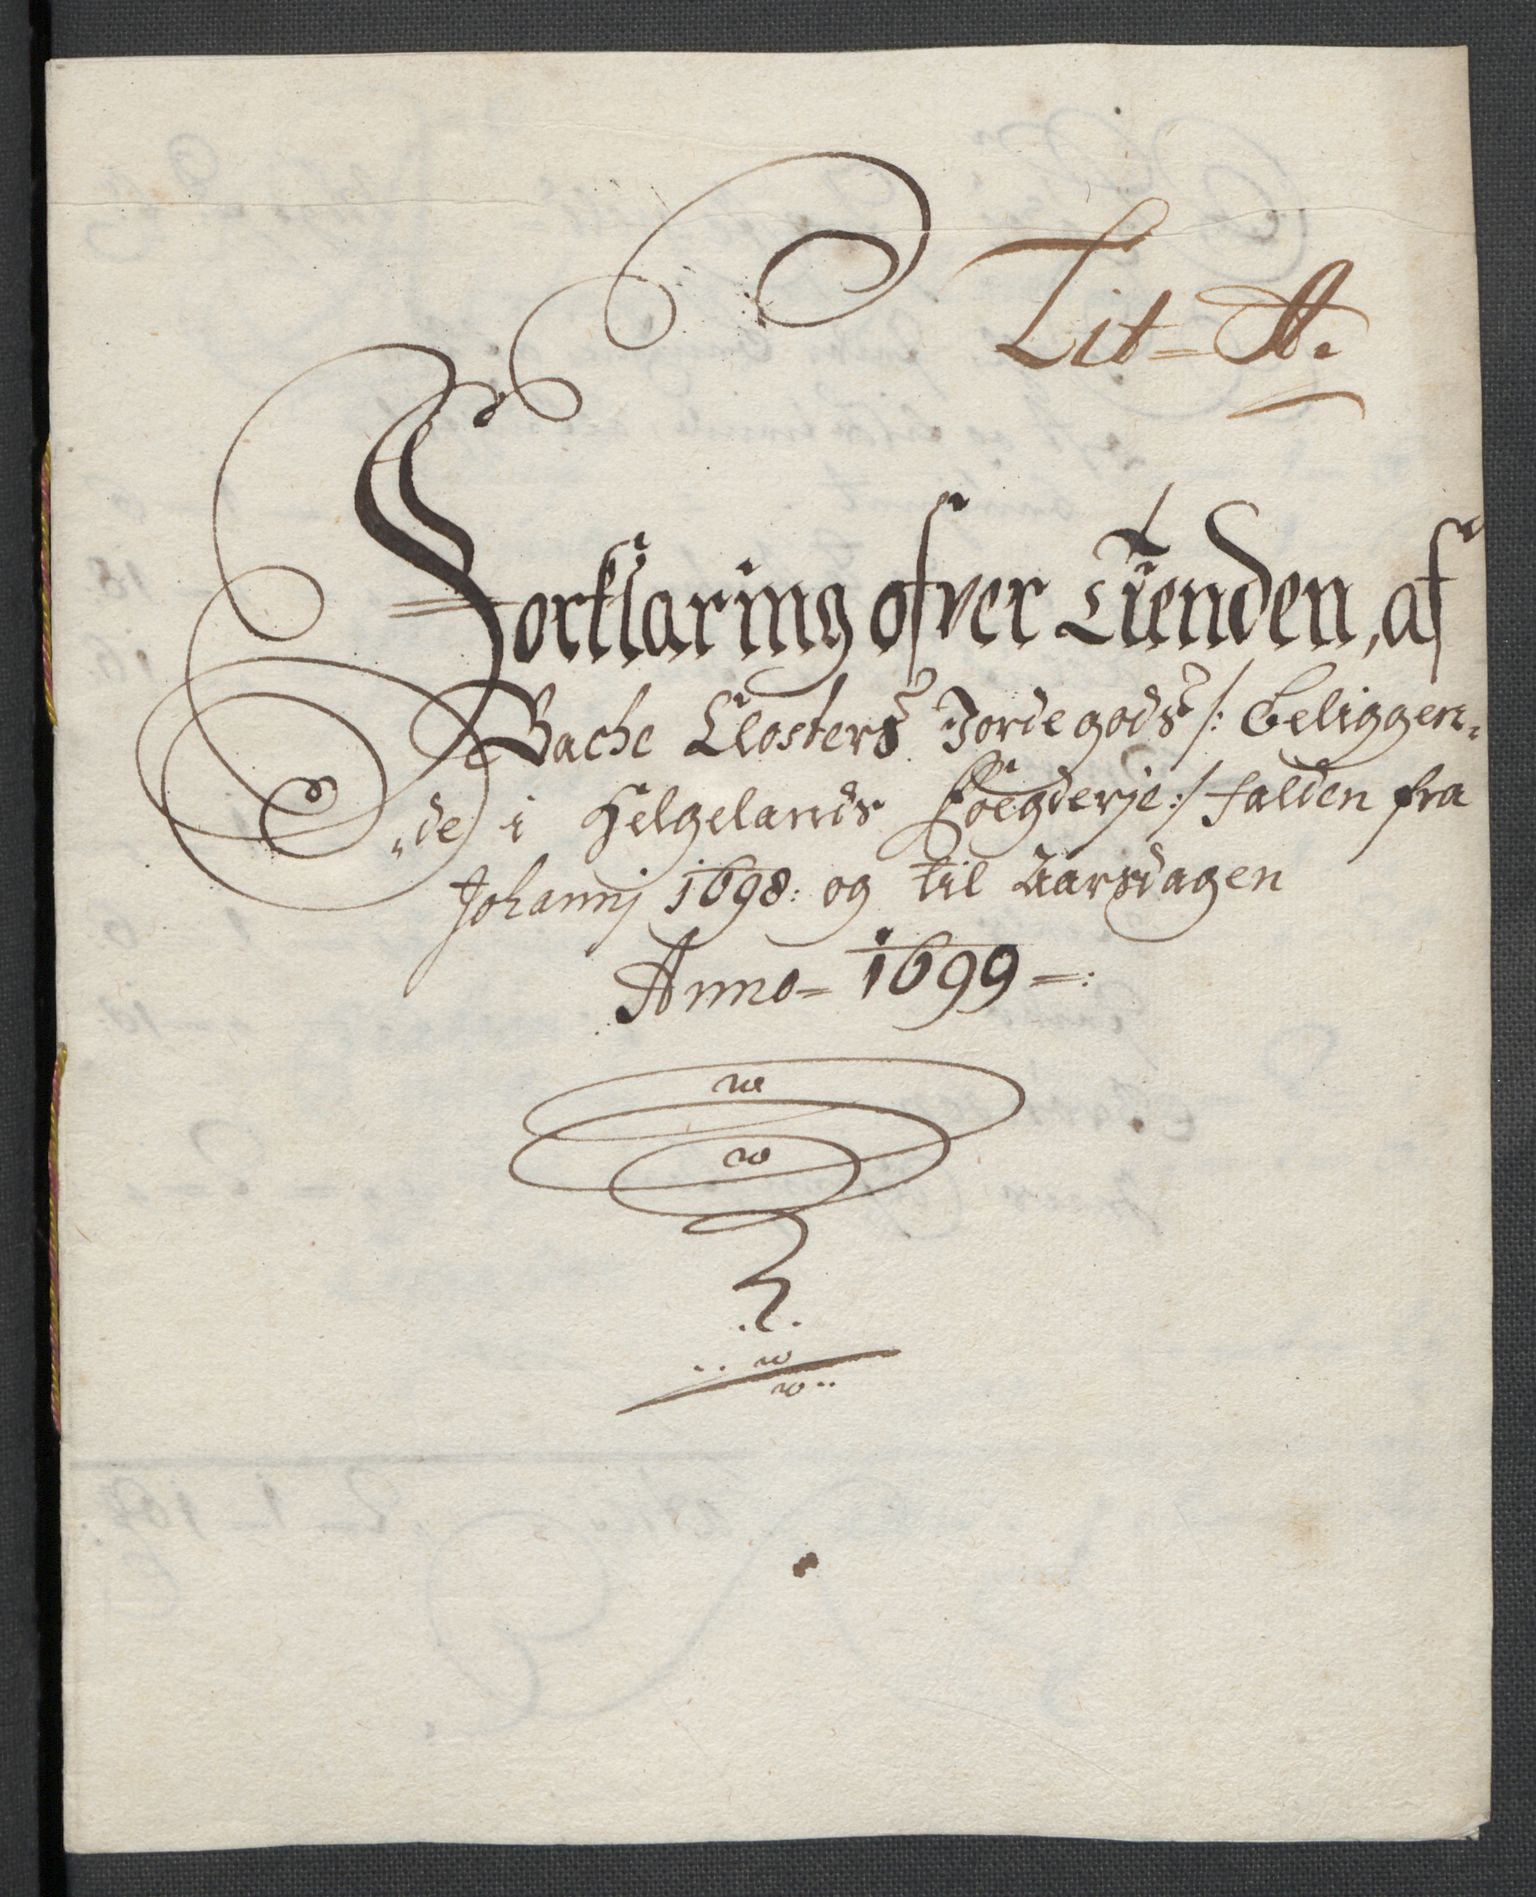 Lit= A.
Forklaring ofver Tienden, af
Bache Closters Jordegods /: beliggen„
„de i Helgelands Foegderje :/ falden fra
Johannj 1698: og til Aarsdagen
Anno= 1699 =: